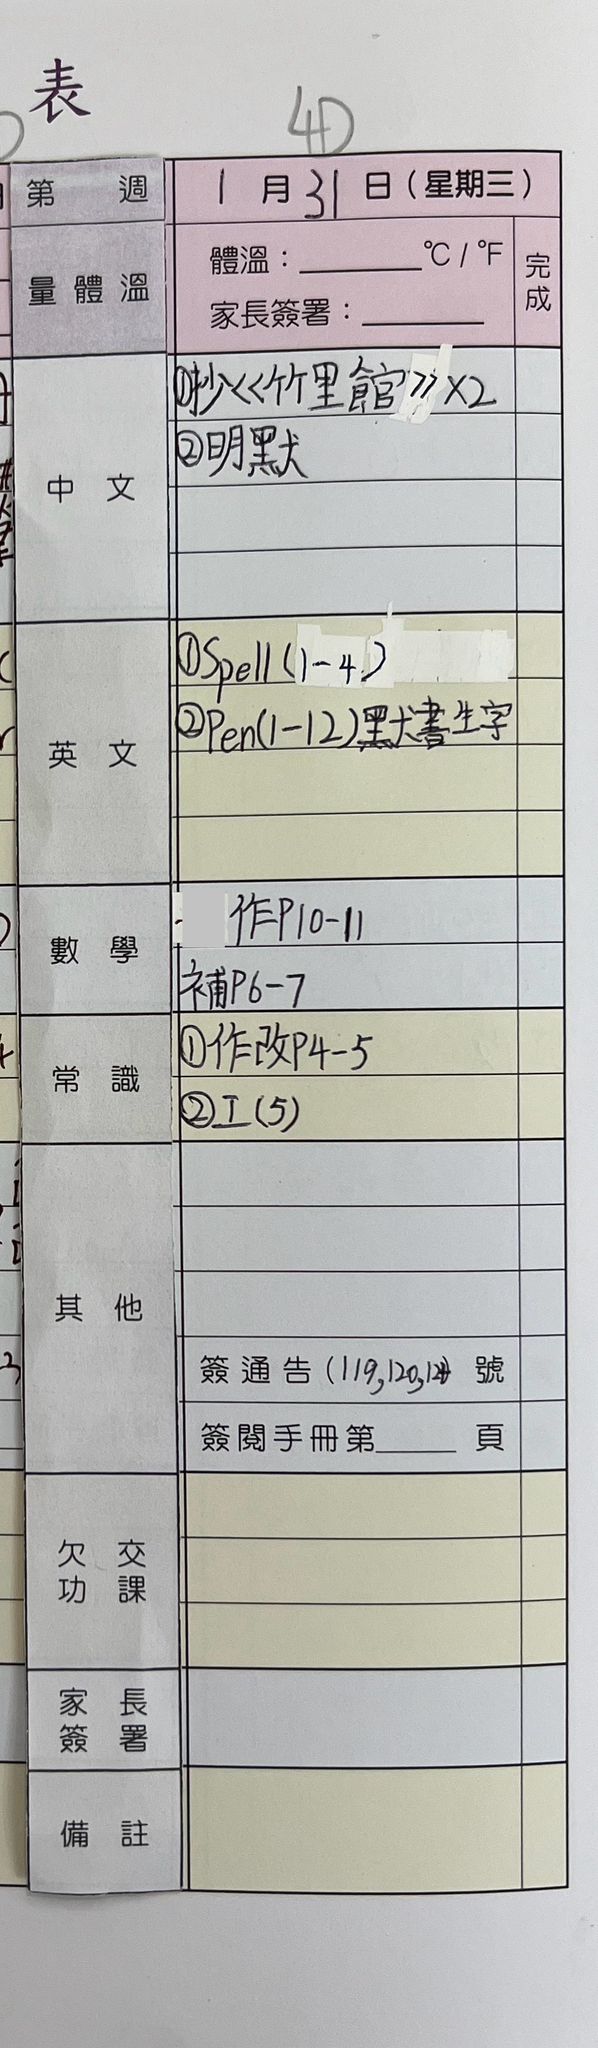 表
4D
第 週
1月31日(星期三)
量體溫
體溫：______°C/°F
家長簽署：______
完成
中文
①抄<<竹里館>>×2
②明默
英文
①Spell(1-4)
②Pen(1-12)默書生字
數學
作P10-11
補P6-7
常識
①作改P4-5
②工(5)
其他
簽通告(119,120,12 號
簽閱手冊第____頁
欠交
功課
家長
簽署
備註